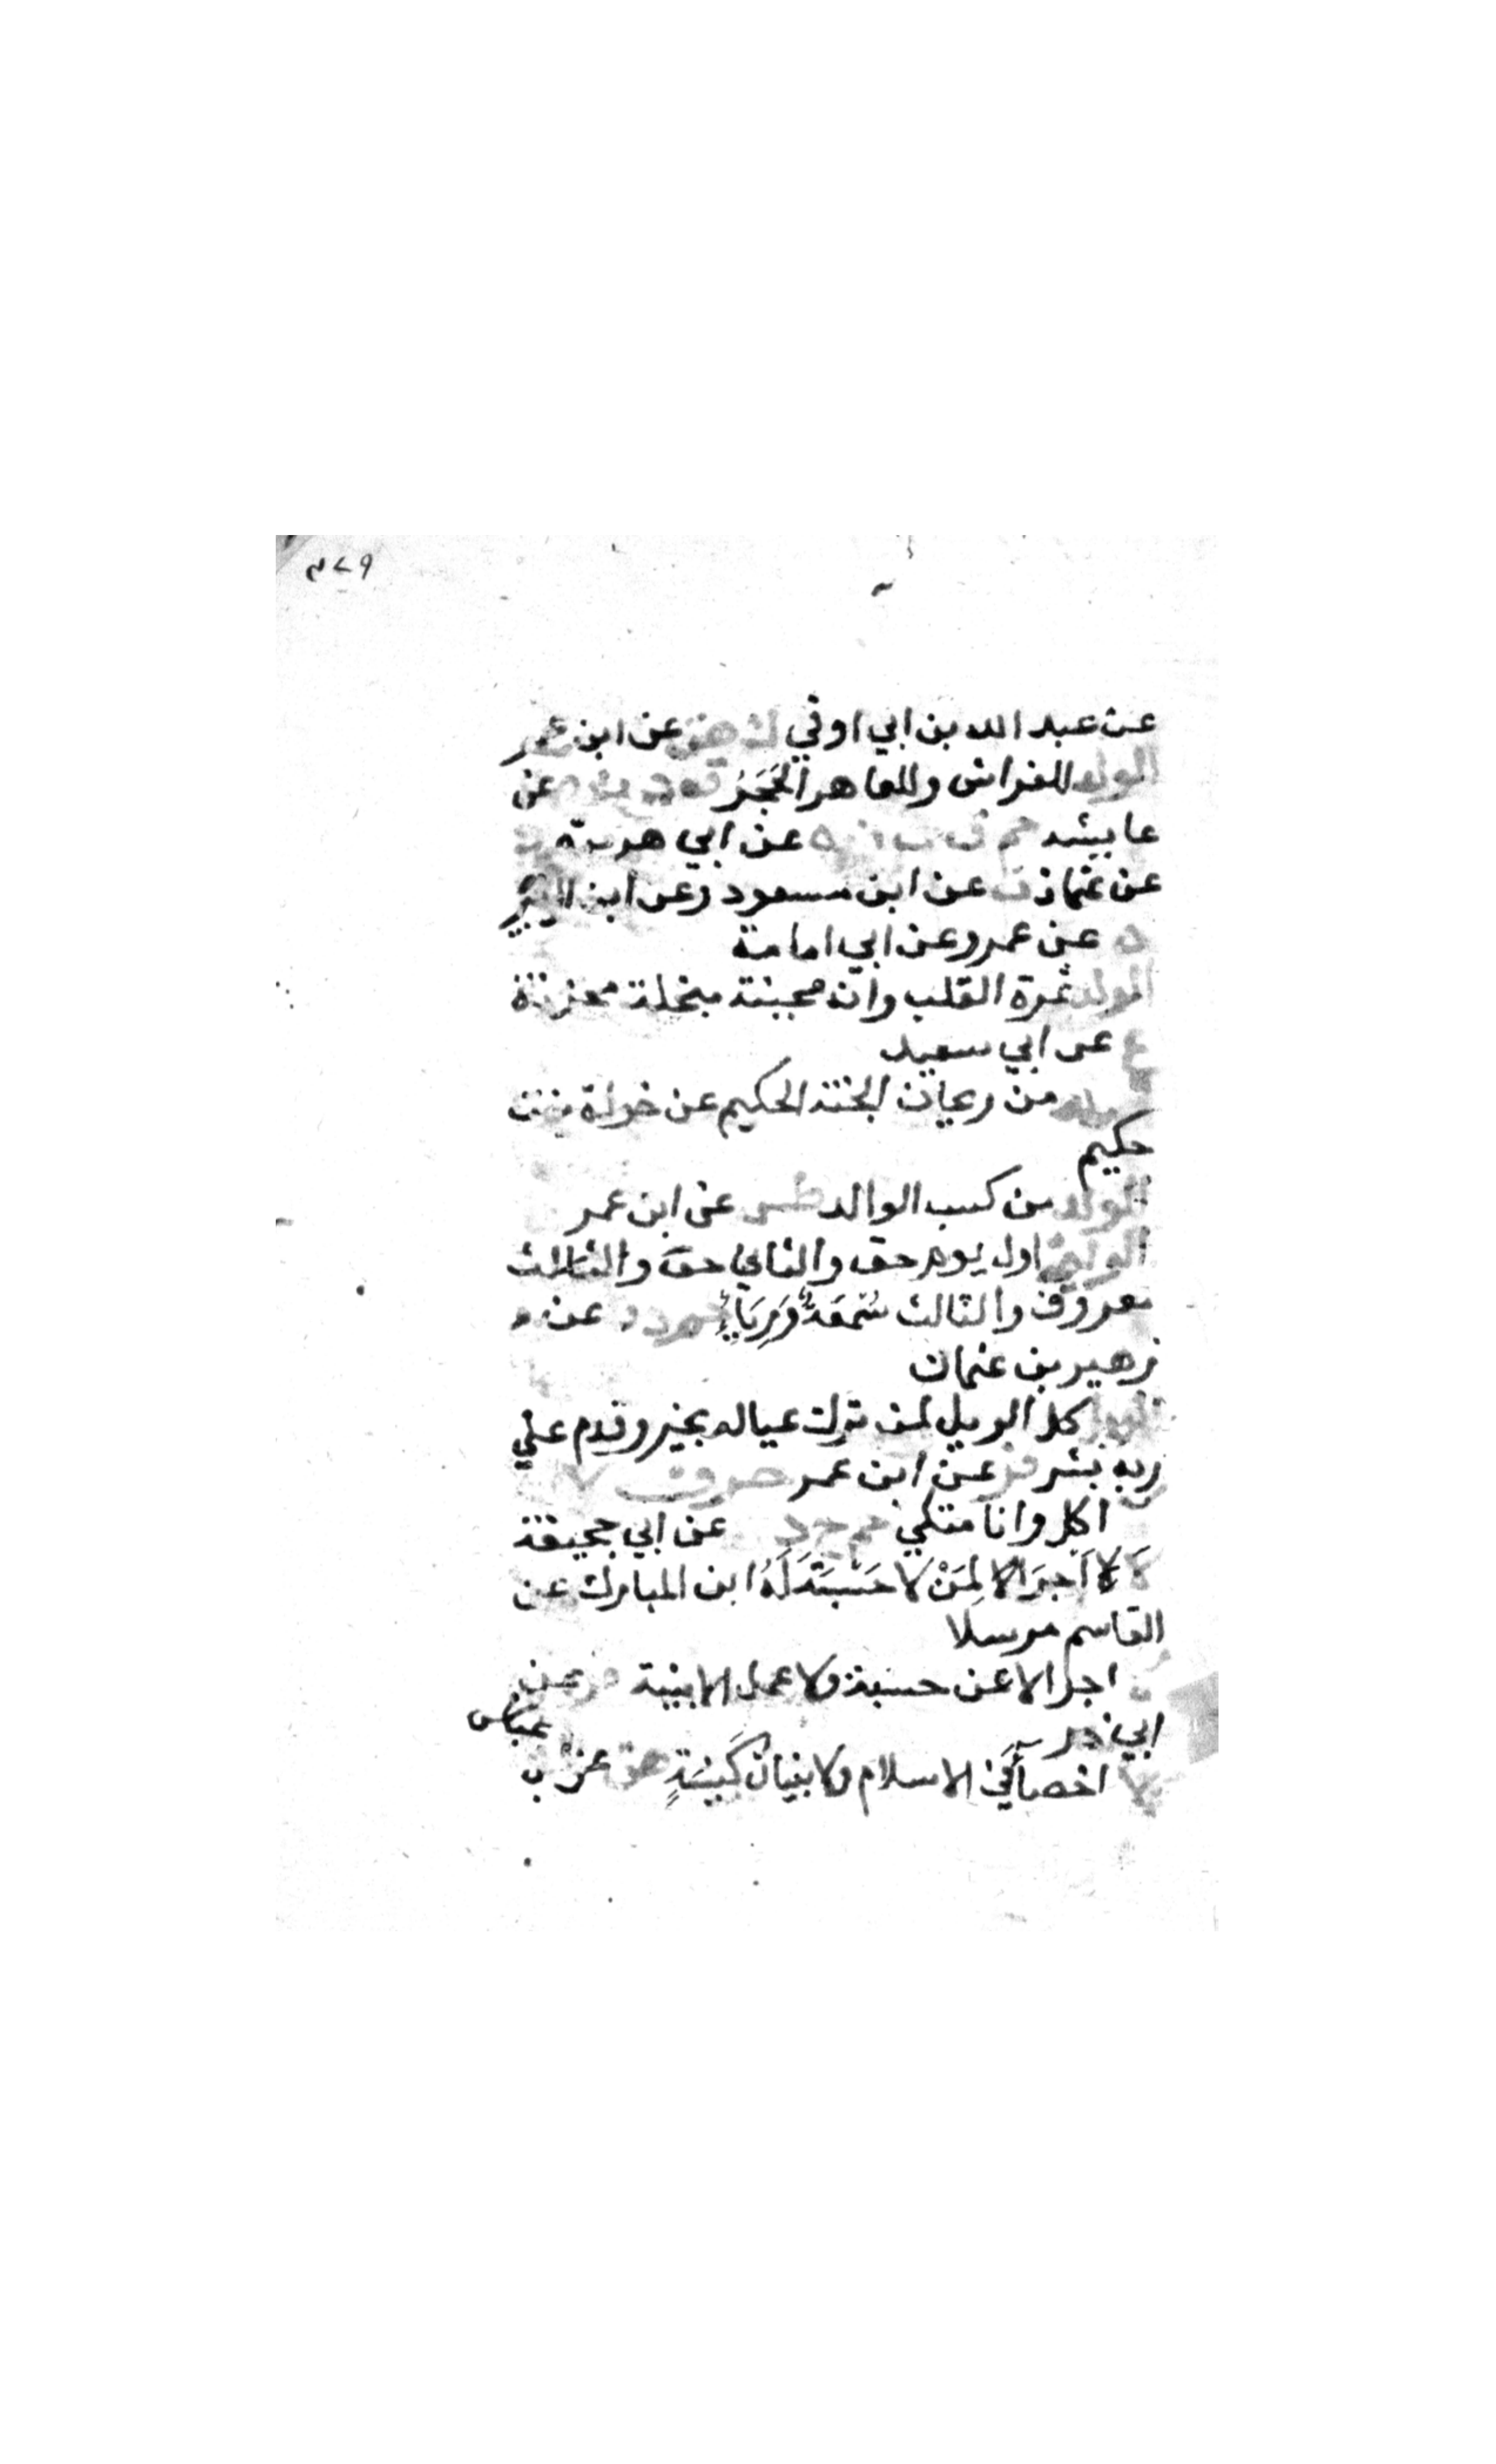 عن عبد الله بن ابي اوفي ك هق عن ابن عمر
الولد للفراش وللعاهر الحَجَرُ عن
عايشه حم ق ت ن ه عن ابي هريرة
عن عثمان ن عن ابن مسعود وعن ابن الزبير
ه عن عمر وعن ابي امامة
الولد ثمرة القلب وانه مجبنة مبخلة محزنة
ع عن ابي سعيد
الولد من ريحان الجنة الحكيم عن خولة بنت
حكيم
الولد من كسب الوالد طس عن ابن عمر
الوليمة اول يوم حق والثاني حق والثالث
معروف والثالث سُمْعَةٌ وَرِيَاءٌ حم د ن عن
زهير بن عثمان
الويل كل الويل لمن ترك عياله بخير وقدم علي
ربه بشر فر عن ابن عمر حرف لا
اكل وانا متكي حم خ د عن ابي جحيفة
لَا لا اَجرَ الا لِمَنْ لا حَسْبَةَ لَهُ ابن المبارك عن
القاسم مرسلا
اجر الا عن حسبة ولا عمل الا بنية فر عن
ابي ذر
لا اخصآَ في الاسلام ولا بنيان كَنِيسَةٍ هق عن ابن
عباس